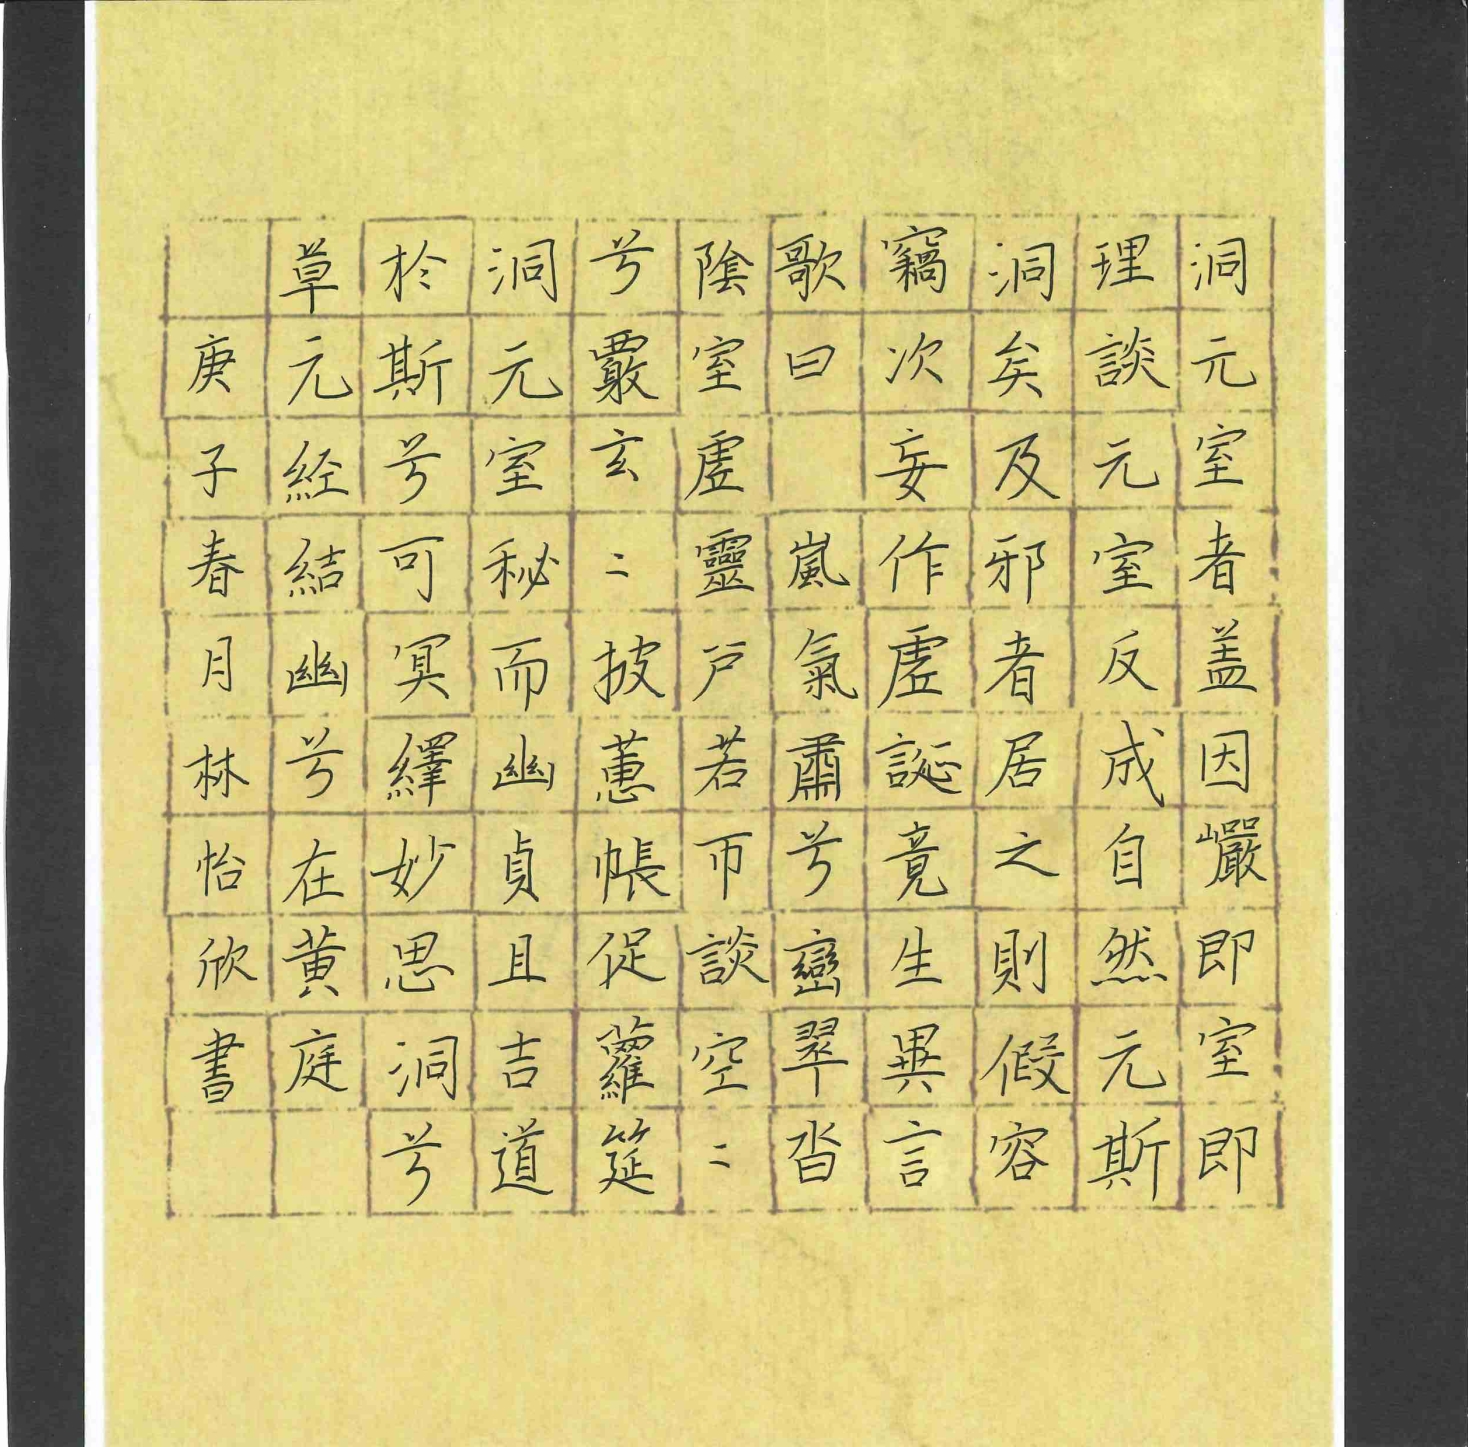 洞元室者盖因巖即室即
理談元室反成自然元斯
洞矣及邪者居之則假容
竊次妄作虗誕竟生異言
歌曰 嵐氣肅兮巒翠沓
陰室虗靈戸若帀談空二
兮覈玄二披蕙帳促蘿筵
洞元室秘而幽貞且吉道
於斯兮可冥繹妙思洞兮
草元経結幽兮在黄庭
庚子春月林怡欣書